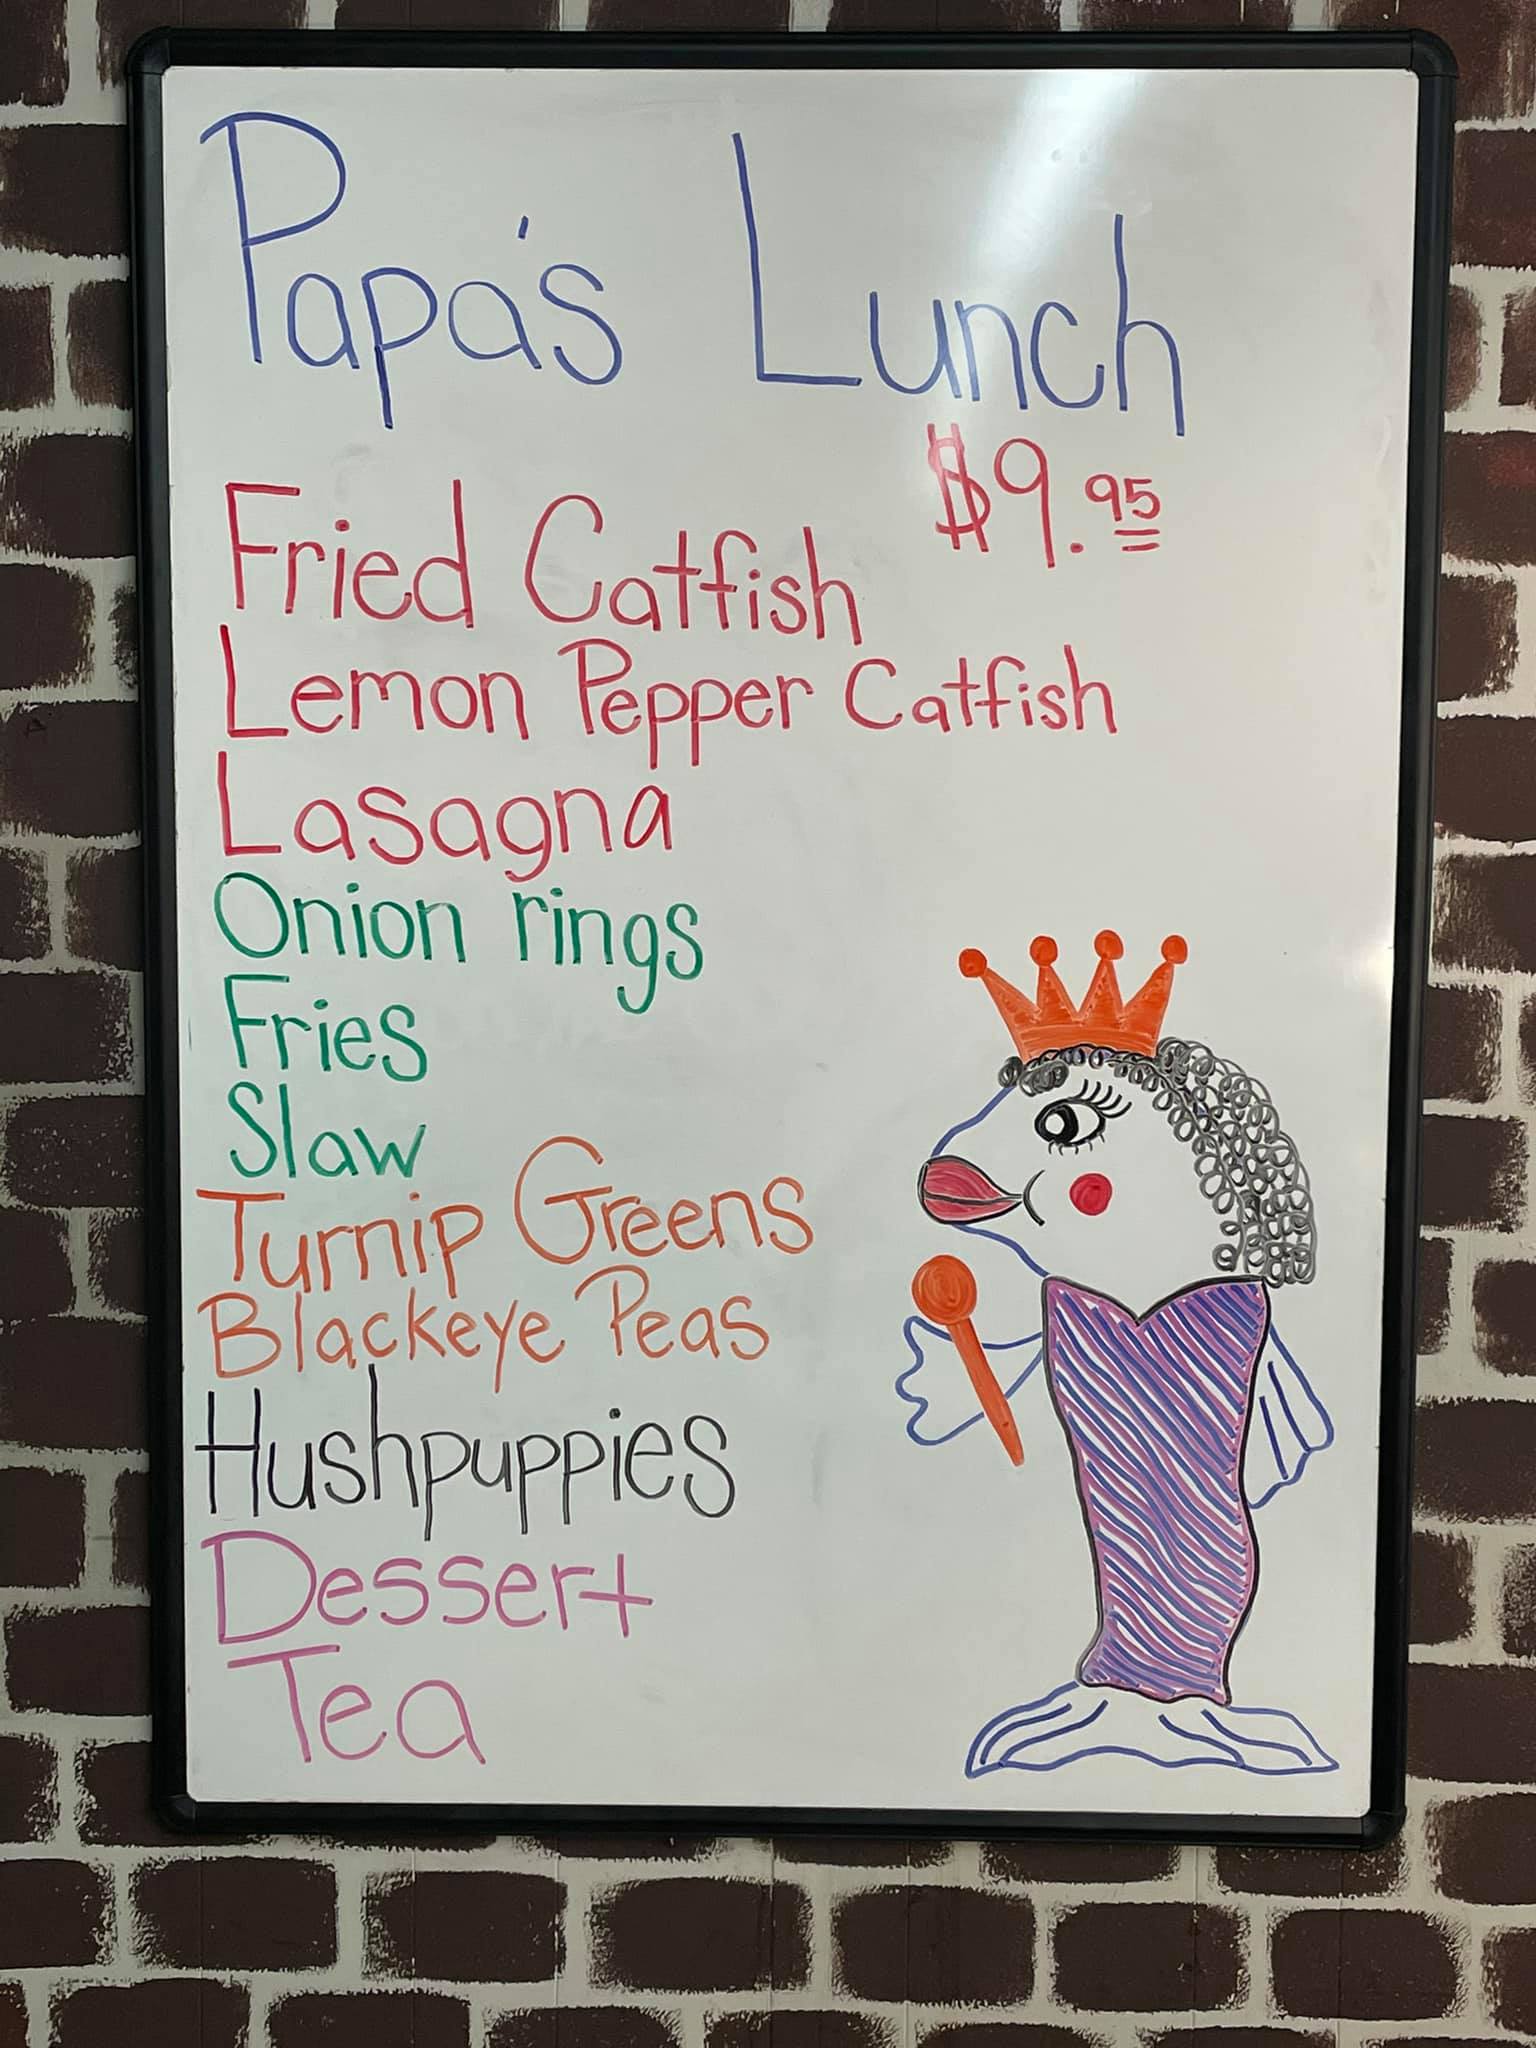 Papa's Lunch
$9.95
Fried Catfish
Lemon Pepper Catfish
Lasagna
Onion rings
Fries
Slaw
Turnip Greens
Blackeye Peas
Hushpuppies
Dessert
Tea